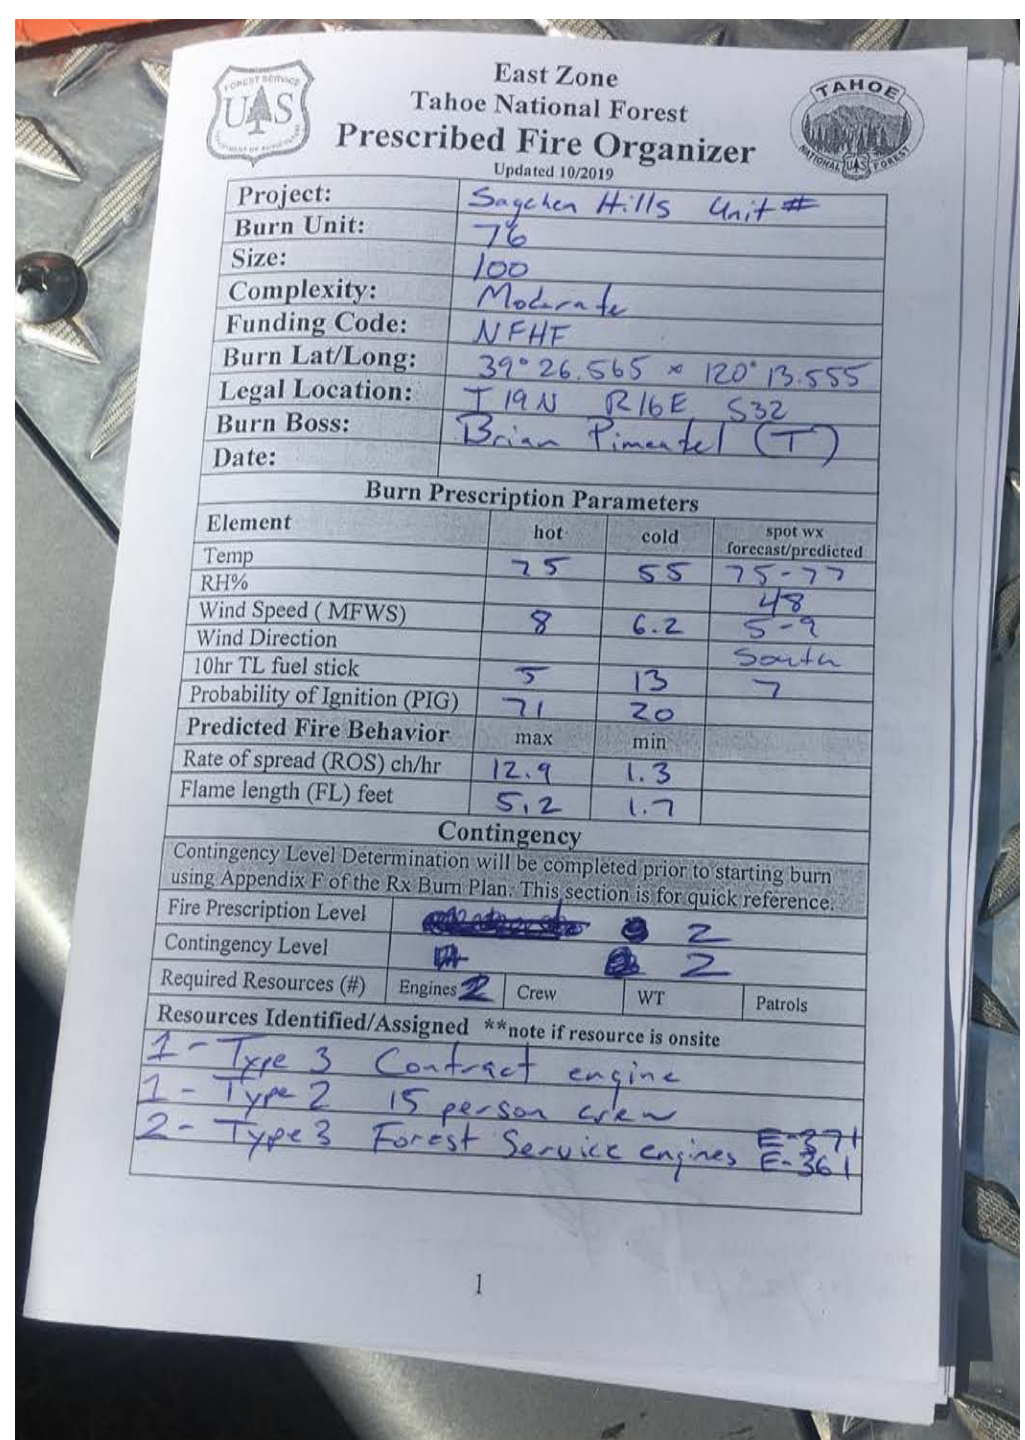 FOREST SERVICE
UAS
DEPARTMENT OF AGRICULTURE
East Zone
Tahoe National Forest
Prescribed Fire Organizer
Updated 10/2019
TAHOE
NATIONAL UAS FOREST
Project: Sagehen Hills Unit #
Burn Unit: 76
Size: 100
Complexity: Moderate
Funding Code: NFHF
Burn Lat/Long: 39° 26.565 × 120° 13.555
Legal Location: T 19N R16E S32
Burn Boss: Brian Pimentel (T)
Date:
Burn Prescription Parameters
Element hot cold spot wx forecast/predicted
Temp 75 55 75-77
RH% 48
Wind Speed ( MFWS) 8 6.2 5-9
Wind Direction South
10hr TL fuel stick 5 13 7
Probability of Ignition (PIG) 71 20
Predicted Fire Behavior max min
Rate of spread (ROS) ch/hr 12.9 1.3
Flame length (FL) feet 5.2 1.7
Contingency
Contingency Level Determination will be completed prior to starting burn
using Appendix F of the Rx Burn Plan. This section is for quick reference.
Fire Prescription Level 2
Contingency Level 2
Required Resources (#) Engines 2 Crew WT Patrols
Resources Identified/Assigned **note if resource is onsite
1 - Type 3 Contract engine
1 - Type 2 15 person crew
2 - Type 3 Forest Service engines E-371
E-361
1